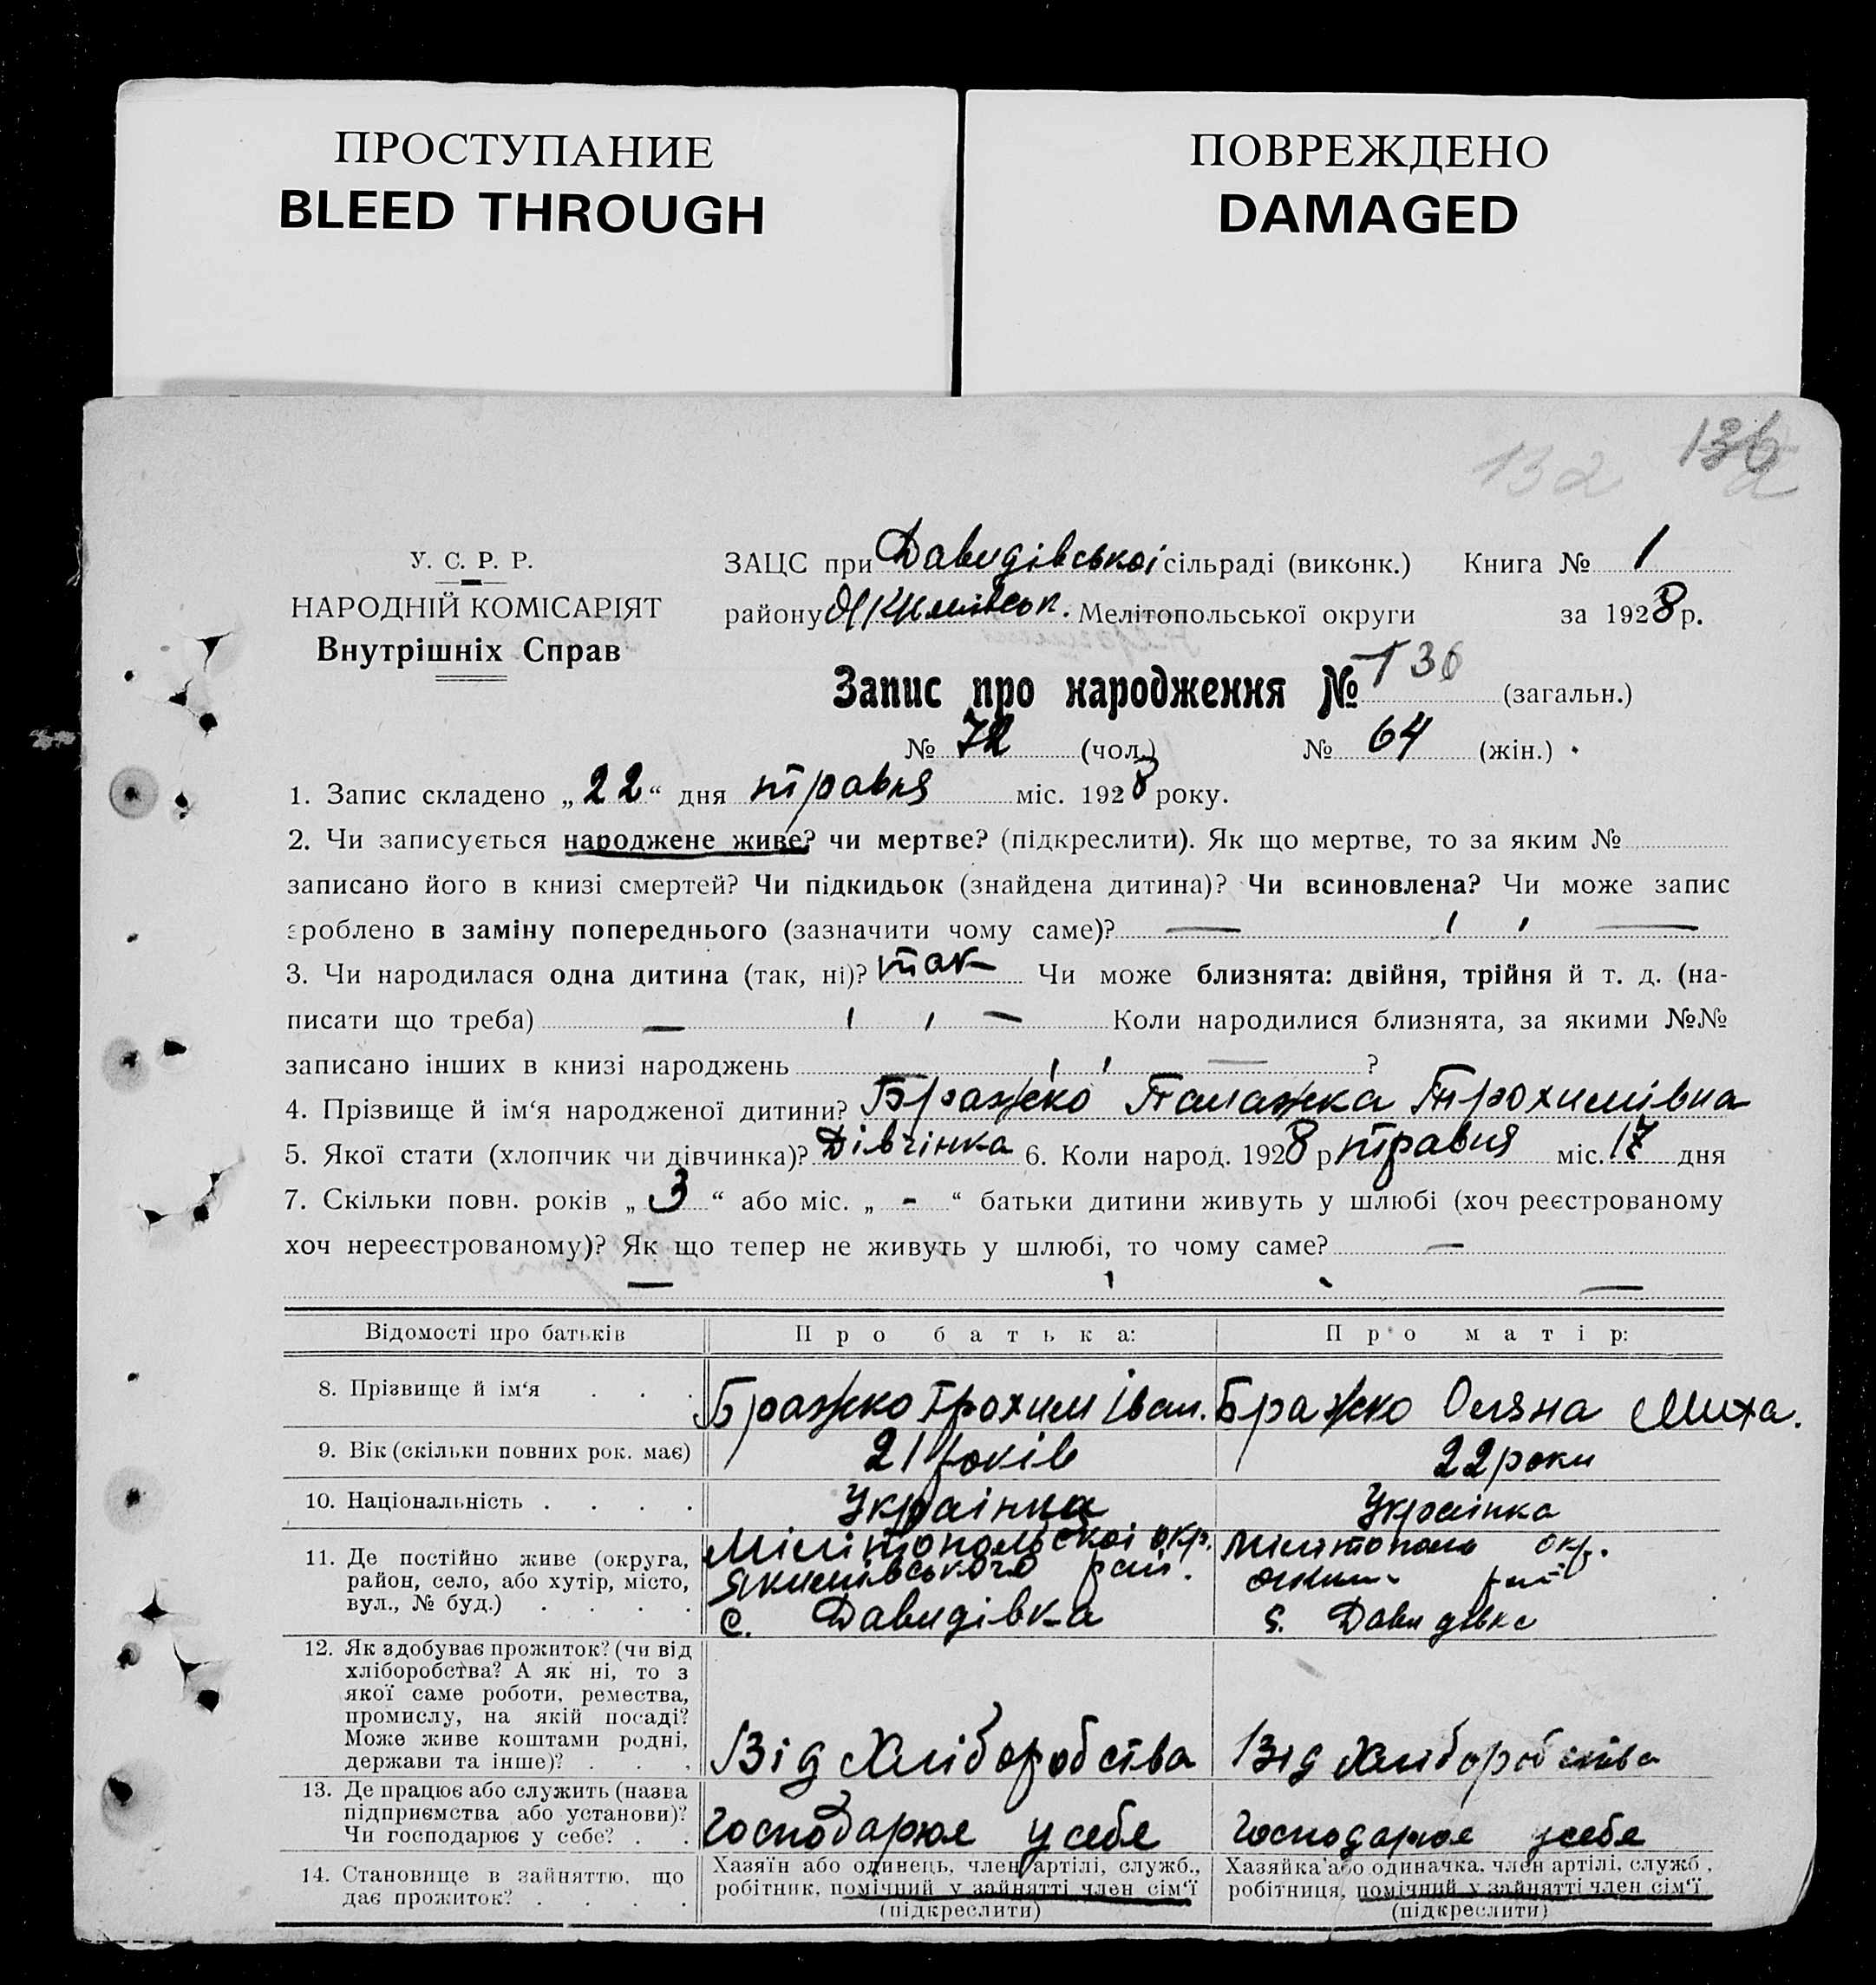 ПРОСТУПАНИЕ
BLEED THROUGH
ПОВРЕЖДЕНО
DAMAGED
132
У. С. Р. Р.
НАРОДНІЙ КОМІСАРІЯТ
Внутрішніх Справ
ЗАЦС при Давидівської сільраді (виконк.) Книга № 1
району Якимівськ. Мелітопольської округи за 1928 р.
Запис про народження № 136 (загальн.)
№ 72 (чол.) № 64 (жін.)
1. Запис складено „22“ дня травня міс. 1928 року.
2. Чи записується народжене живе? чи мертве? (підкреслити). Як що мертве, то за яким №
записано його в книзі смертей? Чи підкидьок (знайдена дитина)? Чи всиновлена? Чи може запис
зроблено в заміну попереднього (зазначити чому саме)? —
3. Чи народилася одна дитина (так, ні)? так Чи може близнята: двійня, трійня й т. д. (на-
писати що треба) — Коли народилися близнята, за якими №№
записано інших в книзі народжень — ?
4. Прізвище й ім‘я народженої дитини? Бражко Палажка Трохимівна
5. Якої стати (хлопчик чи дівчинка)? Дівчінка 6. Коли народ. 1928 р. травня міс. 17 дня
7. Скільки повн. років „3“ або міс. „-“ батьки дитини живуть у шлюбі (хоч реєстрованому
хоч нереєстрованому)? Як що тепер не живуть у шлюбі, то чому саме? —
Відомості про батьків
Про батька:
Про матір:
8. Прізвище й ім‘я . . .
Бражко Трохим Іван.
Бражко Оляна Миха.
9. Вік (скільки повних рок. має)
21 років
22 роки
10. Національність . . . .
Українка
Українка
11. Де постійно живе (округа,
район, село, або хутір, місто,
вул., № буд.) . . . .
Мілітопольскоі окр.
Якимівського рай.
с. Давидівка
Мілітополь окр.
рай
с. Давидівка
12. Як здобуває прожиток? (чи від
хліборобства? А як ні, то з
якої саме роботи, ремества,
промислу, на якій посаді?
Може живе коштами родні,
держави та інше)? . . .
Від Хліборобства
Від Хліборобства
13. Де працює або служить (назва
підприємства або установи)?
Чи господарює у себе? . .
Господарює у себе
Господарює у себе
14. Становище в зайняттю, що
дає прожиток? . . . .
Хазяїн або одинець, член артілі, служб.,
робітник, помічний у зайнятті член сім‘ї
(підкреслити)
Хазяйка або одиначка, член артілі, служб.,
робітниця, помічний у зайнятті член сім‘ї
(підкреслити)